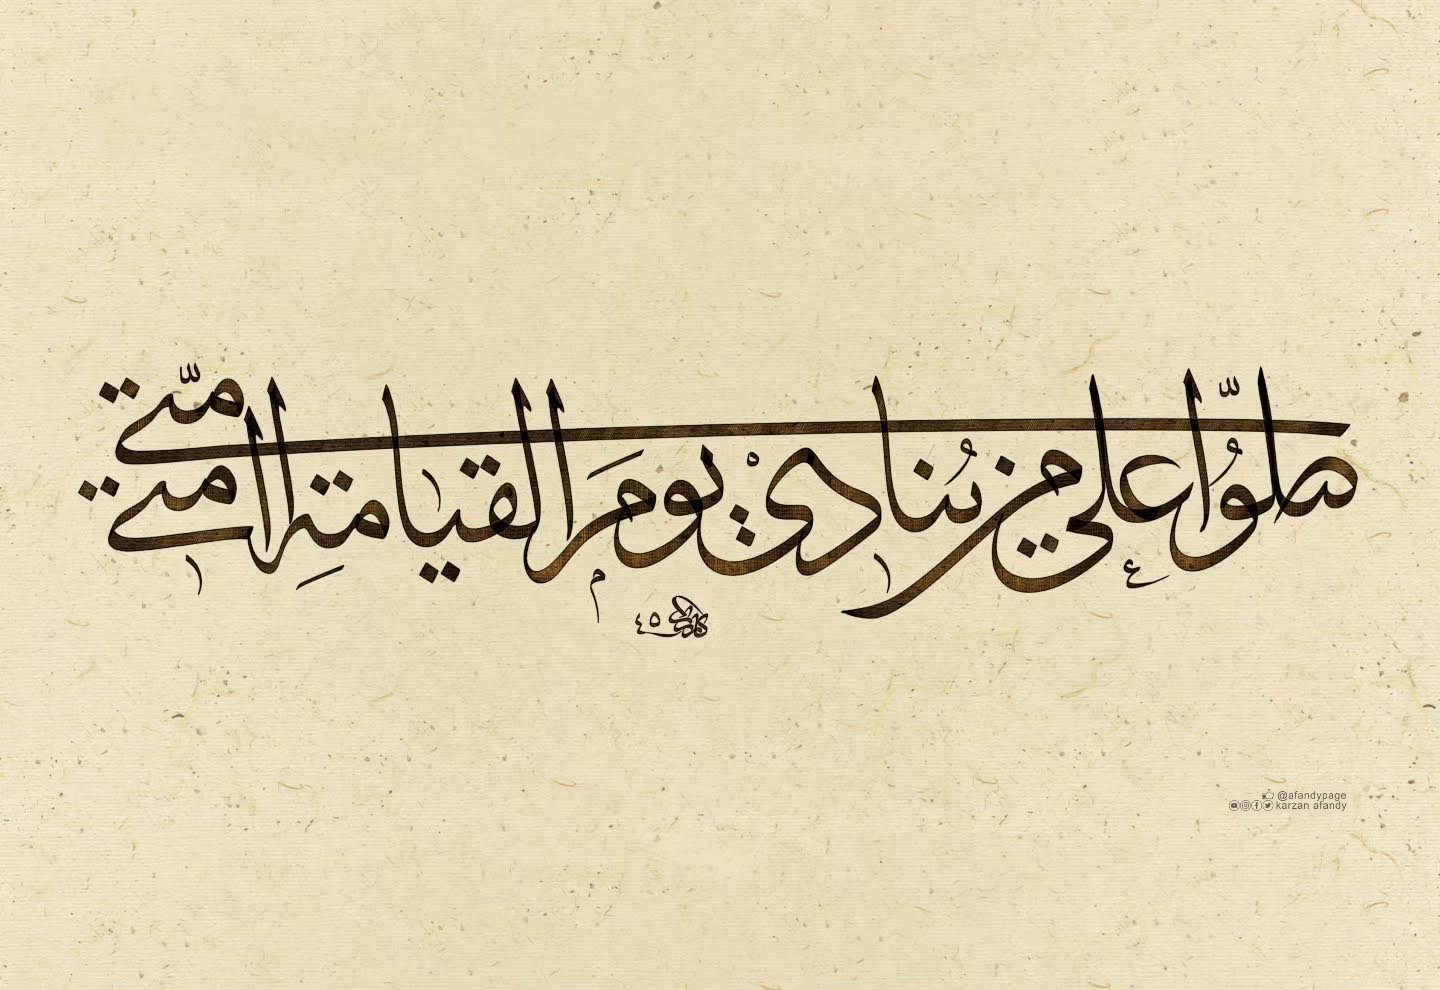 صلّوا على من يُنادي يومَ القيامةِ امّتي امتي
٤٥
@afandypage
karzan afandy